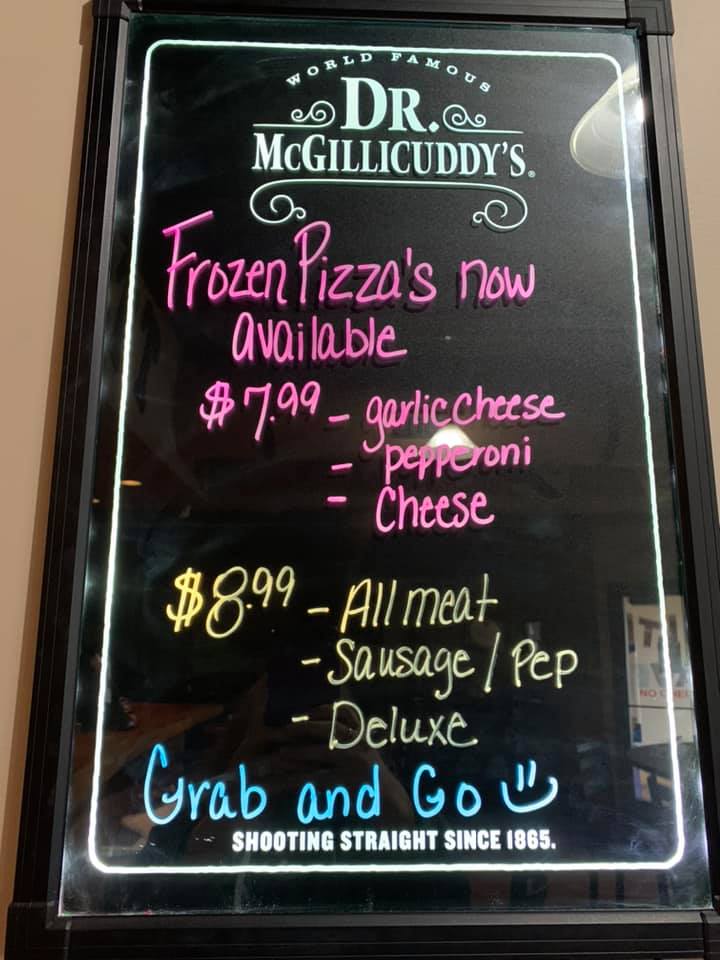 WORLD FAMOUS
DR.
McGILLICUDDY'S®
Frozen Pizza's now
available
$7.99 - garlic cheese
- pepperoni
- Cheese
$8.99 - All meat
- Sausage / Pep
- Deluxe
Grab and Go
SHOOTING STRAIGHT SINCE 1865.